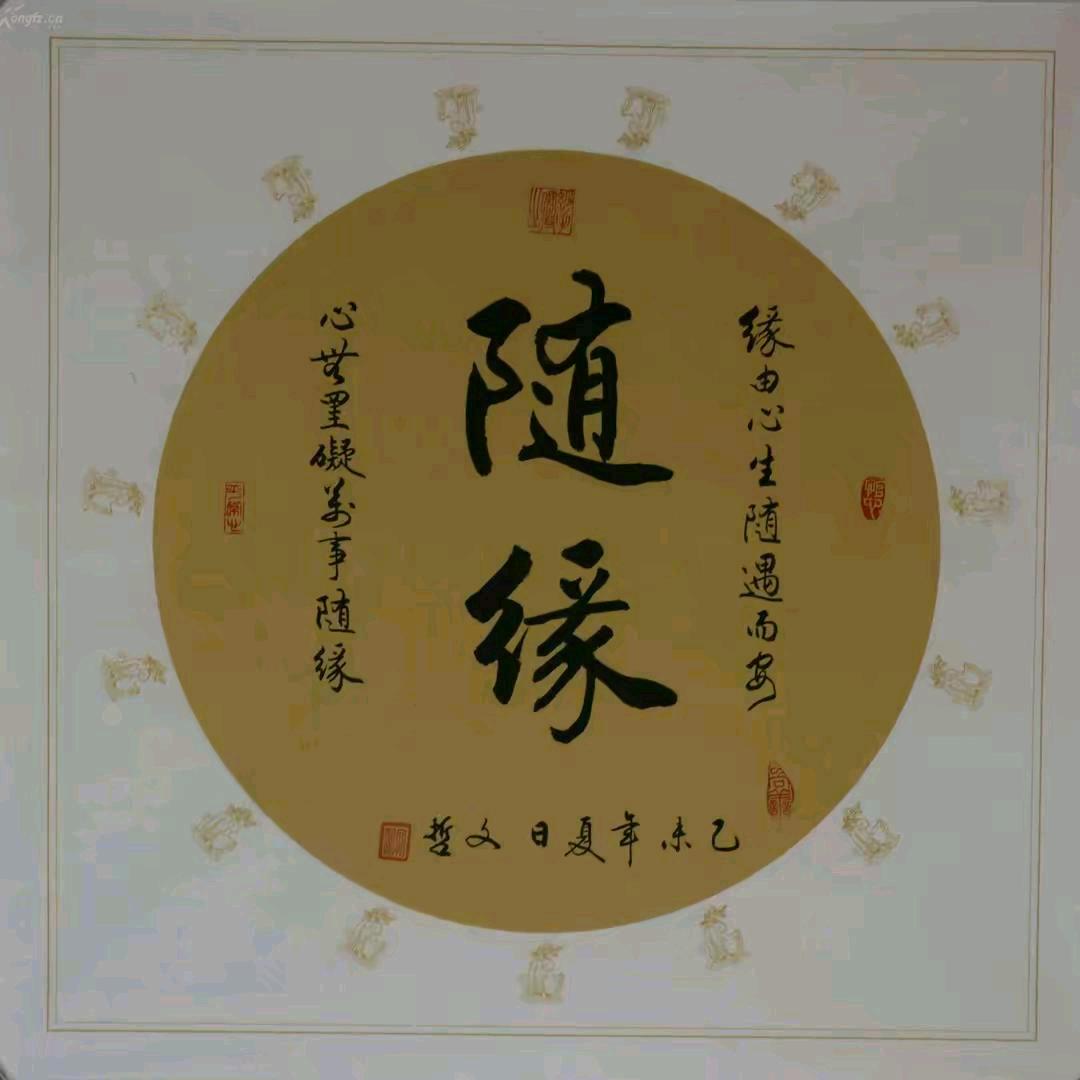 随缘
缘由心生随遇而安
心無罣礙萬事随缘
乙未年夏日 文哲